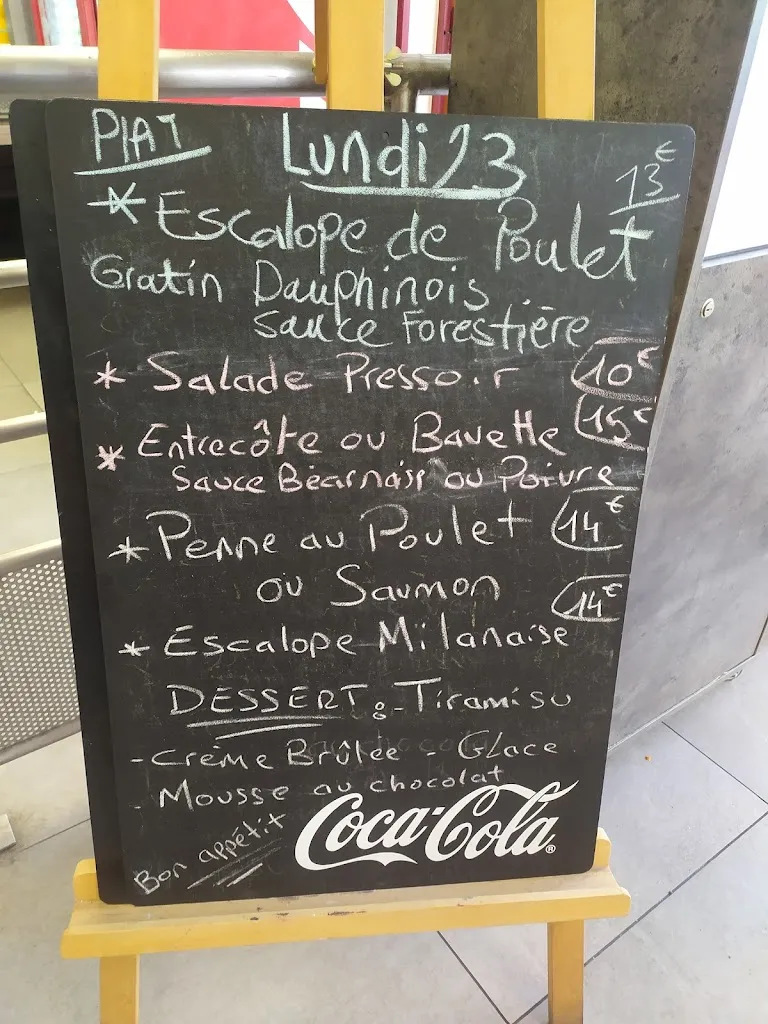 PLAT Lundi 23 13€
* Escalope de Poulet
Gratin Dauphinois
Sauce Forestière
* Salade Pressoir 10€
* Entrecôte ou Bavette 15€
Sauce Béarnaise ou Poivre
* Penne au Poulet 14€
ou Saumon
* Escalope Milanaise 14€
DESSERT :- Tiramisu
- Crème Brûlée - Glace
- Mousse au chocolat
Bon appétit
Coca-Cola®